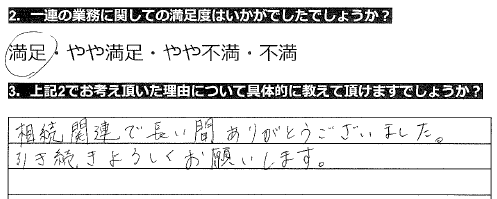 2. 一連の業務に関しての満足度はいかがでしたでしょうか？
満足・やや満足・やや不満・不満
3. 上記2でお考え頂いた理由について具体的に教えて頂けますでしょうか？
相続関連で長い間ありがとうございました。
引き続きよろしくお願いします。